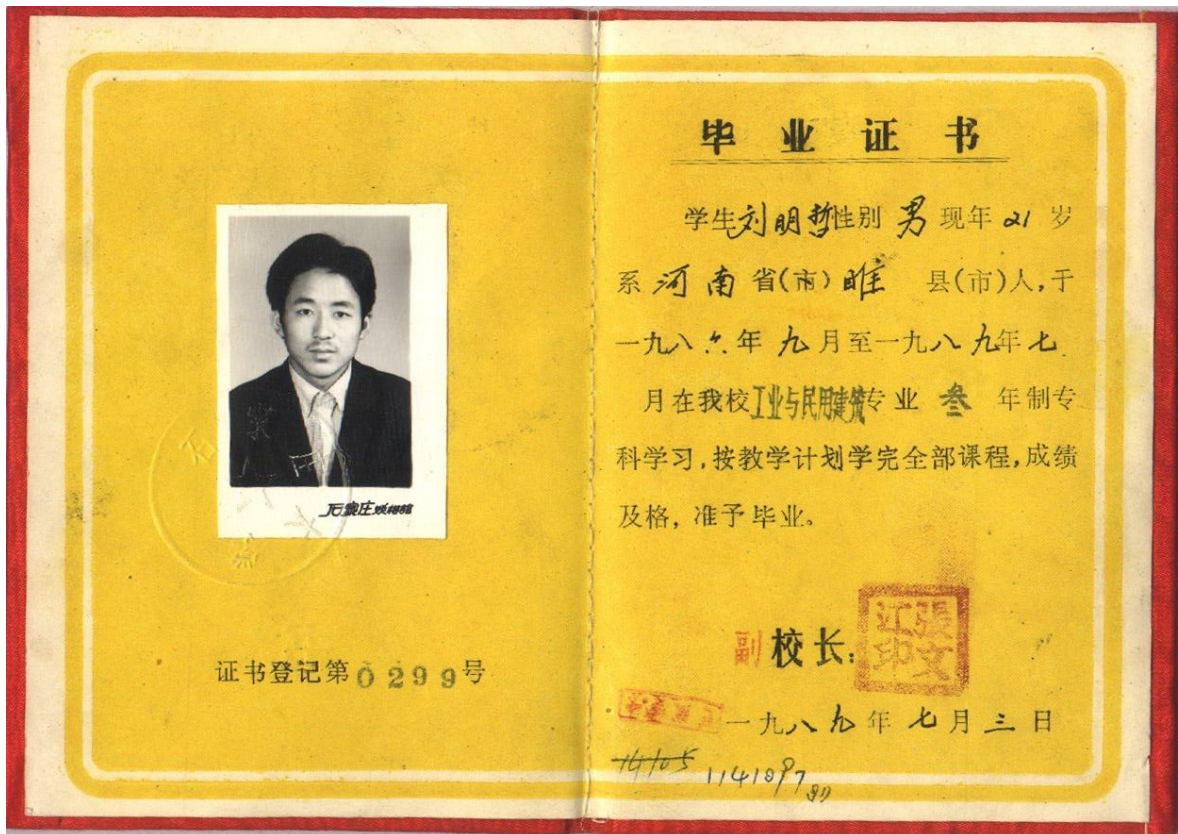 石家庄照相馆
证书登记第0299号
毕业证书
学生刘明哲性别男现年21岁
系河南省(市)睢县(市)人,于
一九八六年九月至一九八九年七
月在我校工业与民用建筑专业叁年制专
科学习,按教学计划学完全部课程,成绩
及格,准予毕业。
副校长:
張文江印
一九八九年七月三日
14105